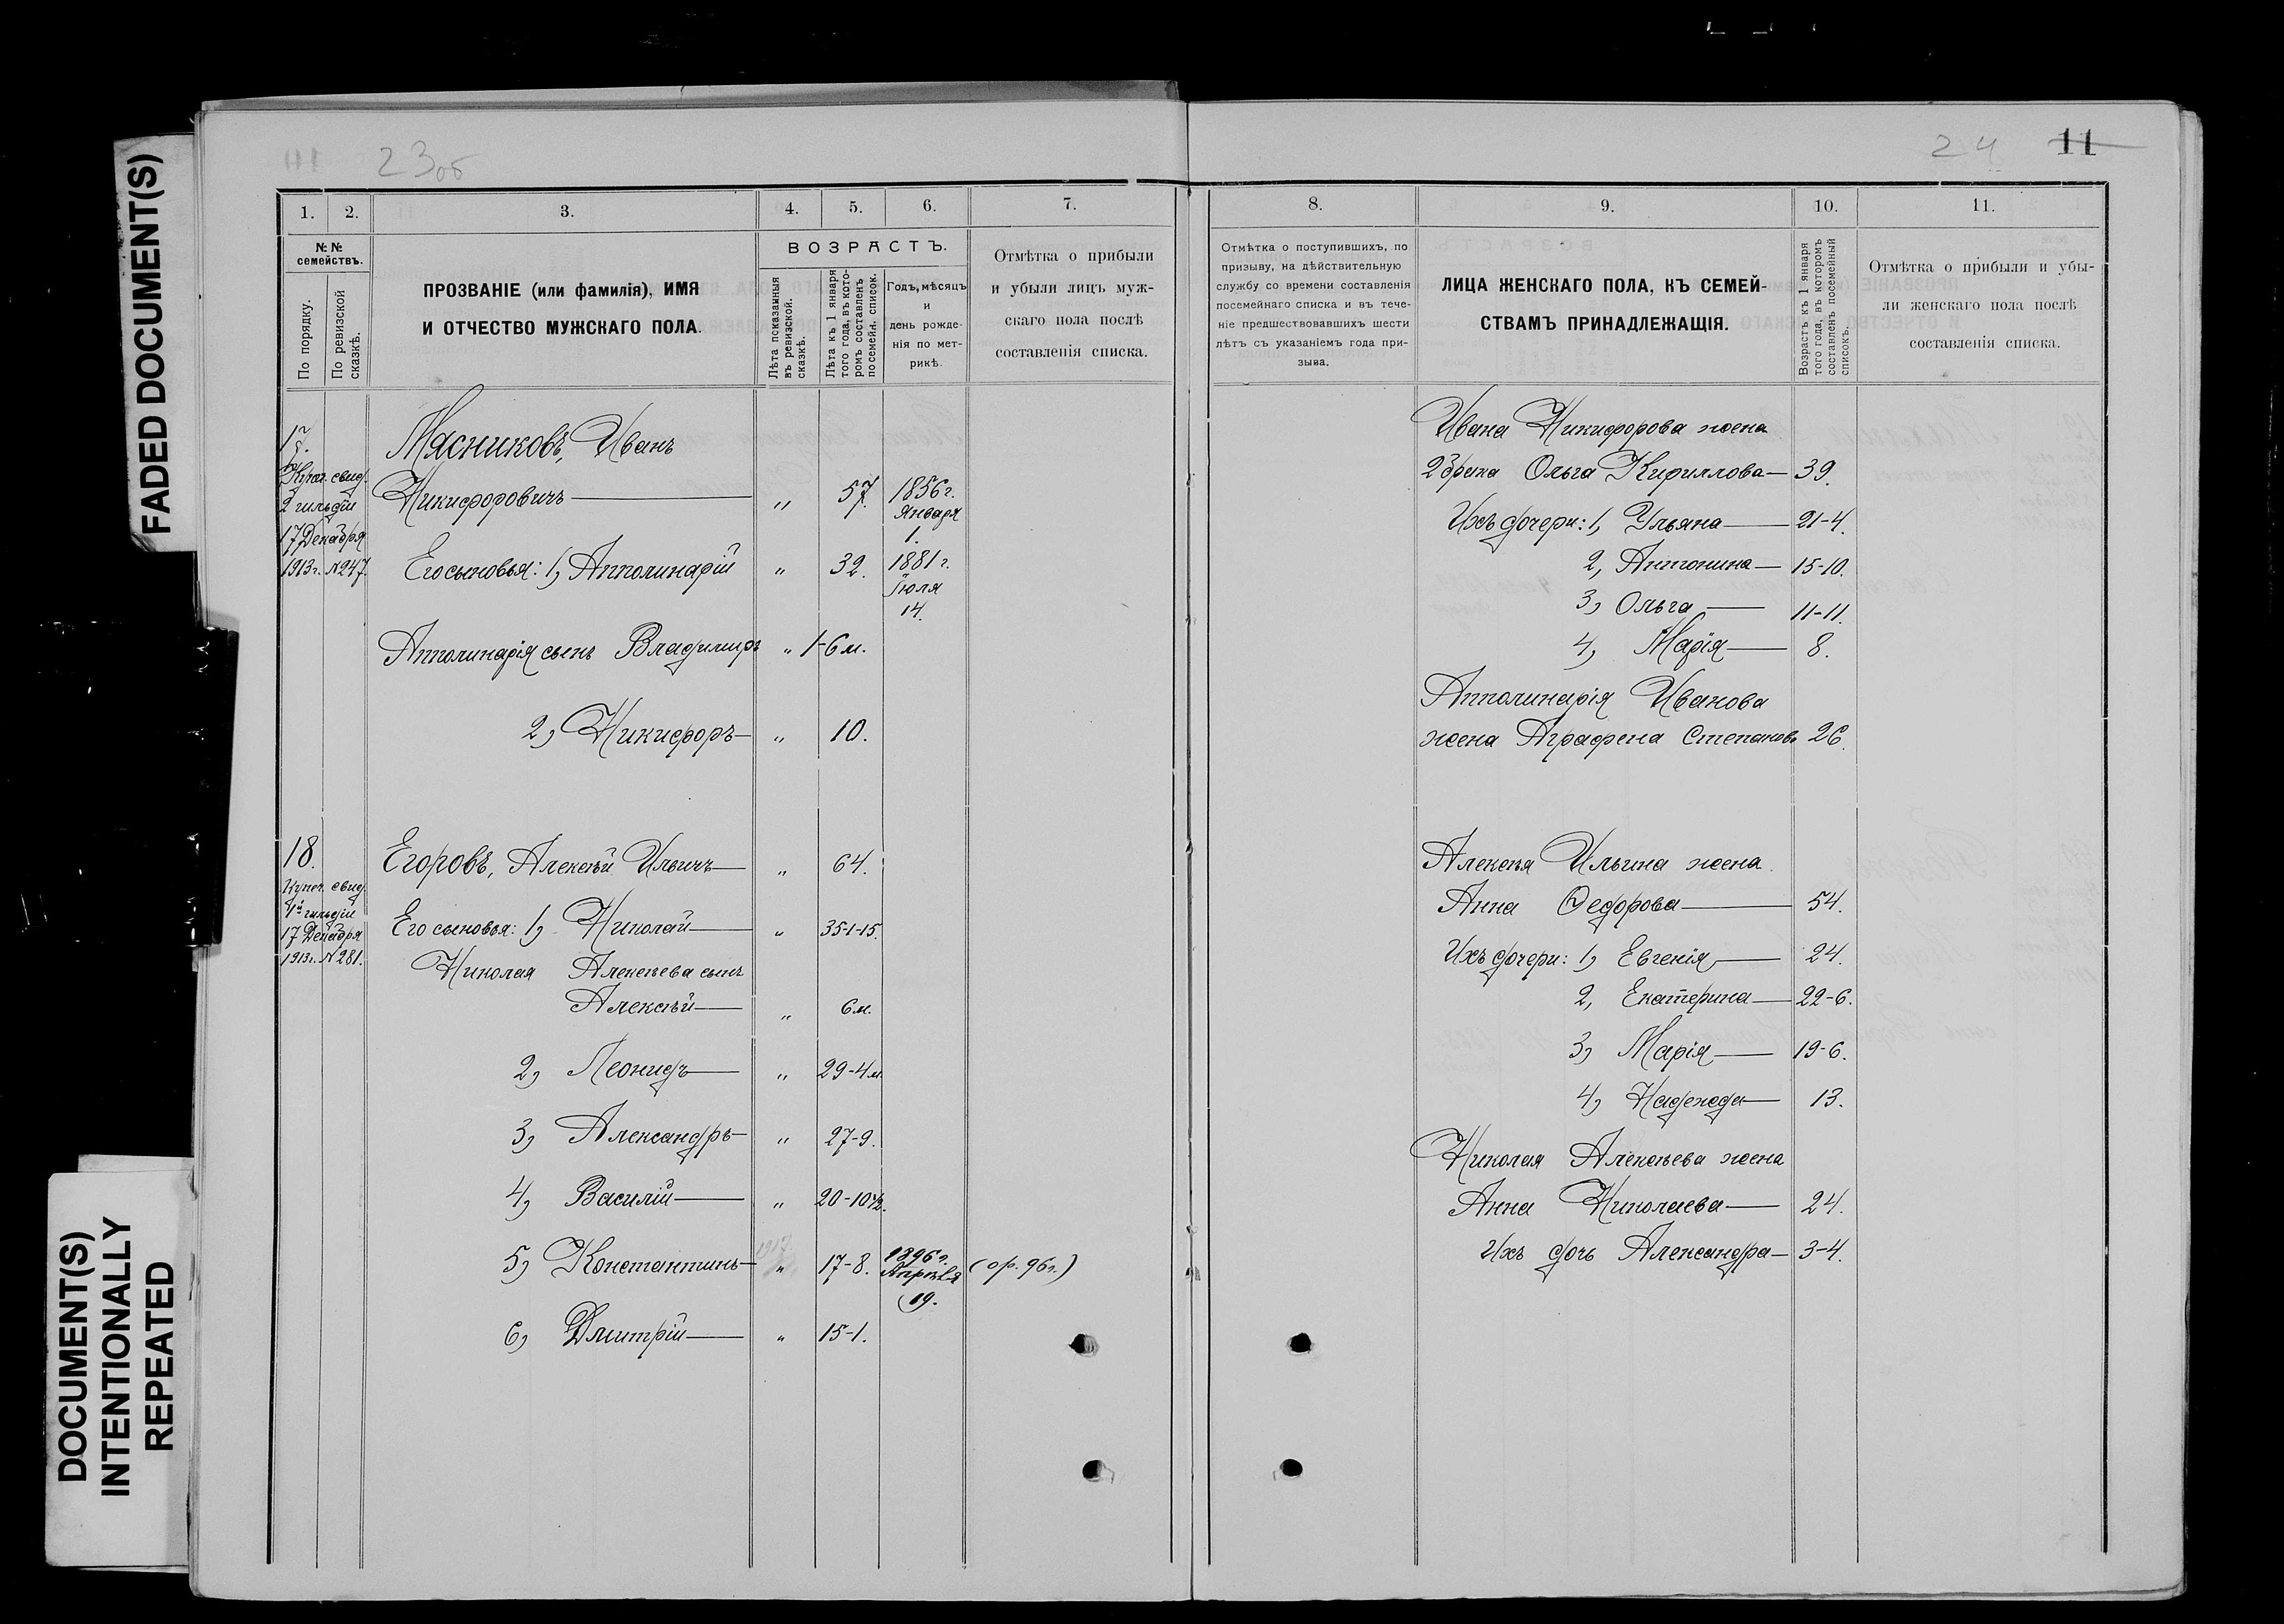 FADED DOCUMENT(S)
DOCUMENT(S)
INTENTIONALLY
REPEATED
23об
24 11
1. 2. 3. 4. 5. 6. 7.
№ №
семействъ.
По порядку.
По ревизской
сказкѣ.
ПРОЗВАНІЕ (или фамилія), ИМЯ
И ОТЧЕСТВО МУЖСКАГО ПОЛА.
ВОЗРАСТЪ.
Лѣта показанныя
въ ревизской.
сказкѣ.
Лѣта къ 1 января
того года, въ кото-
ромъ составленъ
посемейн. список.
Годъ, мѣсяцъ
и
день рожде-
нія по мет-
рикѣ.
Отмѣтка о прибыли
и убыли лицъ муж-
скаго пола послѣ
составленія списка.
17.
Купеч. свид.
2 гильдіи
17 Декабря
1913г. №247.
Мясниковъ, Иванъ
Никифоровичъ — „ 57. 1856г.
Января
1.
Его сыновья: 1, Апполинарій „ 32. 1881г.
Іюля
14.
Апполинарія сынъ Владимиръ „ 1-6 м.
2, Никифоръ — „ 10.
18.
Купеч. свид.
1й гильдіи
17 Декабря
1913г. №281.
Егоровъ, Алексѣй Ильичъ — „ 64.
Его сыновья: 1, Николай — „ 35-1-15.
Николая Алексѣева сынъ
Алексѣй — „ 6 м.
2, Леонидъ — „ 29-4м
3, Александръ — „ 27-9.
4, Василій — „ 20-10½.
5, Константинъ — „ 17-8. 1896г. (ор. 96г.)
Апрѣля
19.
6, Дмитрій — „ 15-1.
8. 9. 10. 11.
Отмѣтка о поступившихъ, по
призыву, на дѣйствительную
службу со времени составленія
посемейнаго списка и въ тече-
ніе предшествовавшихъ шести
лѣтъ съ указаніемъ года при-
зыва.
ЛИЦА ЖЕНСКАГО ПОЛА, КЪ СЕМЕЙ-
СТВАМЪ ПРИНАДЛЕЖАЩІЯ.
Возрастъ къ 1 января
того года, въ которомъ
составленъ посемейный
списокъ.
Отмѣтка о прибыли и убы-
ли женскаго пола послѣ
составленія списка.
Ивана Никифорова жена
2 брака Ольга Кириллова — 39.
Ихъ дочери: 1, Ульяна — 21-4.
2, Антонина — 15-10.
3, Ольга — 11-11.
4, Марія — 8.
Апполинарія Иванова
жена Аграфена Степанов. 26.
Алексѣя Ильина жена
Анна Ѳедорова — 54.
Ихъ дочери: 1, Евгенія — 24.
2, Екатерина — 22-6.
3, Марія — 19-6.
4, Надежда — 13.
Николая Алексѣева жена
Анна Николаева — 24.
Ихъ дочь Александра — 3-4.